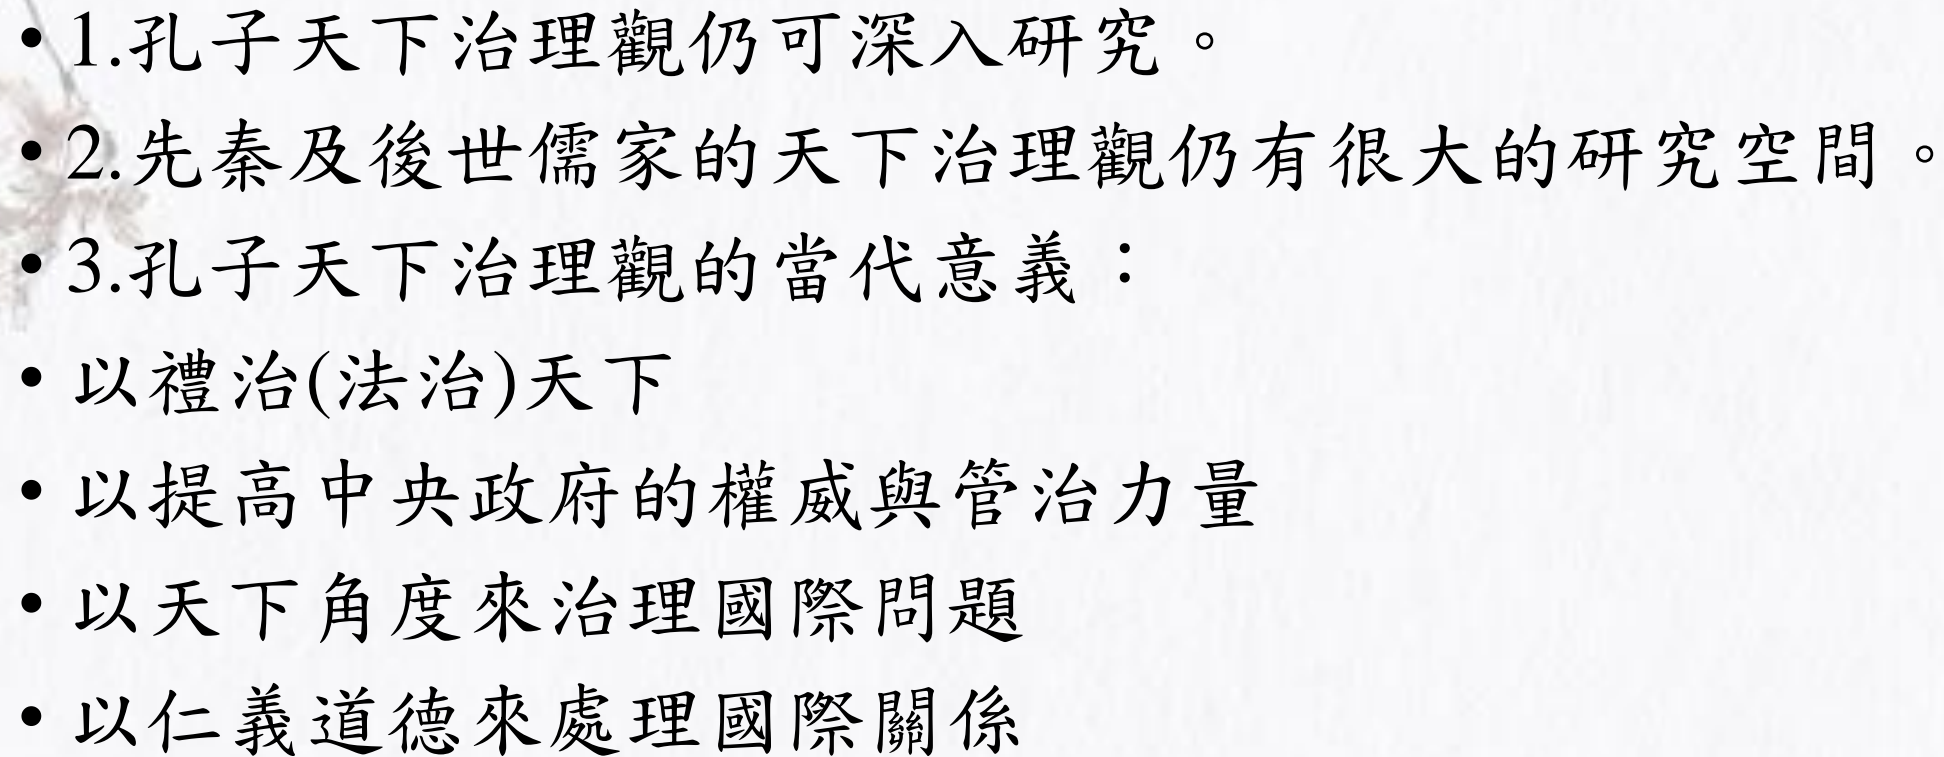 • 1.孔子天下治理觀仍可深入研究。
• 2.先秦及後世儒家的天下治理觀仍有很大的研究空間。
• 3.孔子天下治理觀的當代意義：
• 以禮治(法治)天下
• 以提高中央政府的權威與管治力量
• 以天下角度來治理國際問題
• 以仁義道德來處理國際關係